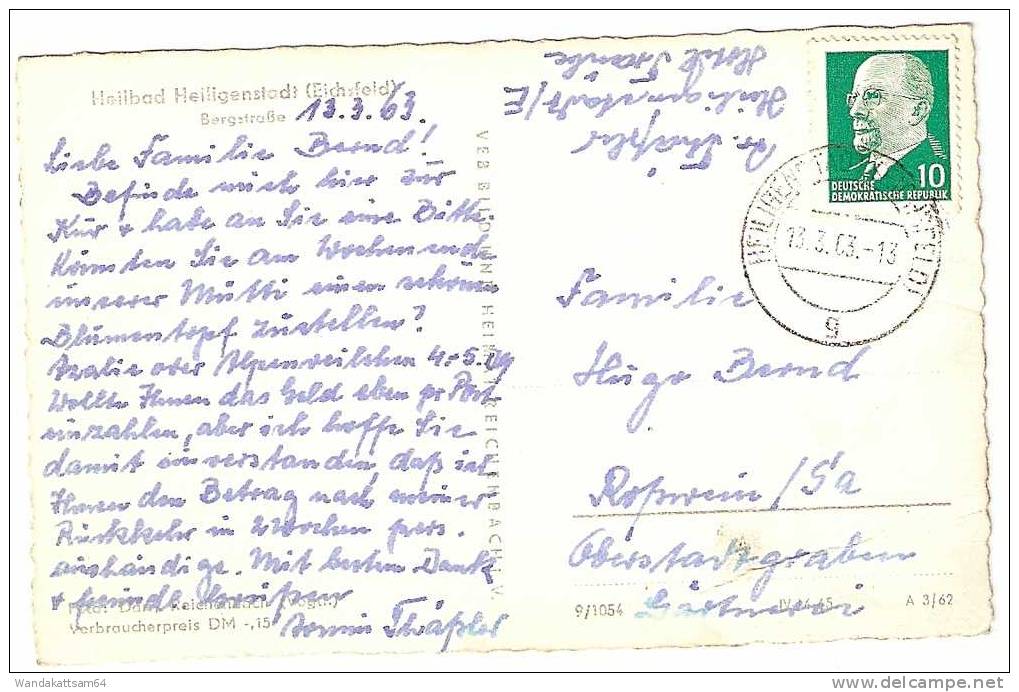 Heilbad Heiligenstadt (Eichsfeld)
Bergstraße
13.3.63.
Liebe Familie Bernd!
Befinde mich hier zur
Kur + habe an Sie eine Bitte.
Könnten Sie am Wochenende
unserer Mutti einen schönen
Blumentopf zustellen?
Azalie oder Alpenveilchen 4.-5.
Wollte Ihnen das Geld eben per Post
einzahlen, aber ich hoffe Sie
damit einverstanden, daß ich
Ihnen den Betrag nach meiner
Rückkehr in 2 Wochen pers.
aushändige. Mit besten Dank
+ freundl. Grüßen
Foto: Darr, Reichenbach (Vogtl.)
Verbraucherpreis DM -,15
VEB BILD UND HEIMAT REICHENBACH i. V.
Heiligenstadt/E
Hotel
DEUTSCHE
DEMOKRATISCHE REPUBLIK
10
13.3.63.-13
g
Familie
Hugo Bernd
Roßwein/Sa
Oberstadtgraben
Gärtnerei
9/1054
A 3/62
Wandakattsam64
delcampe.net